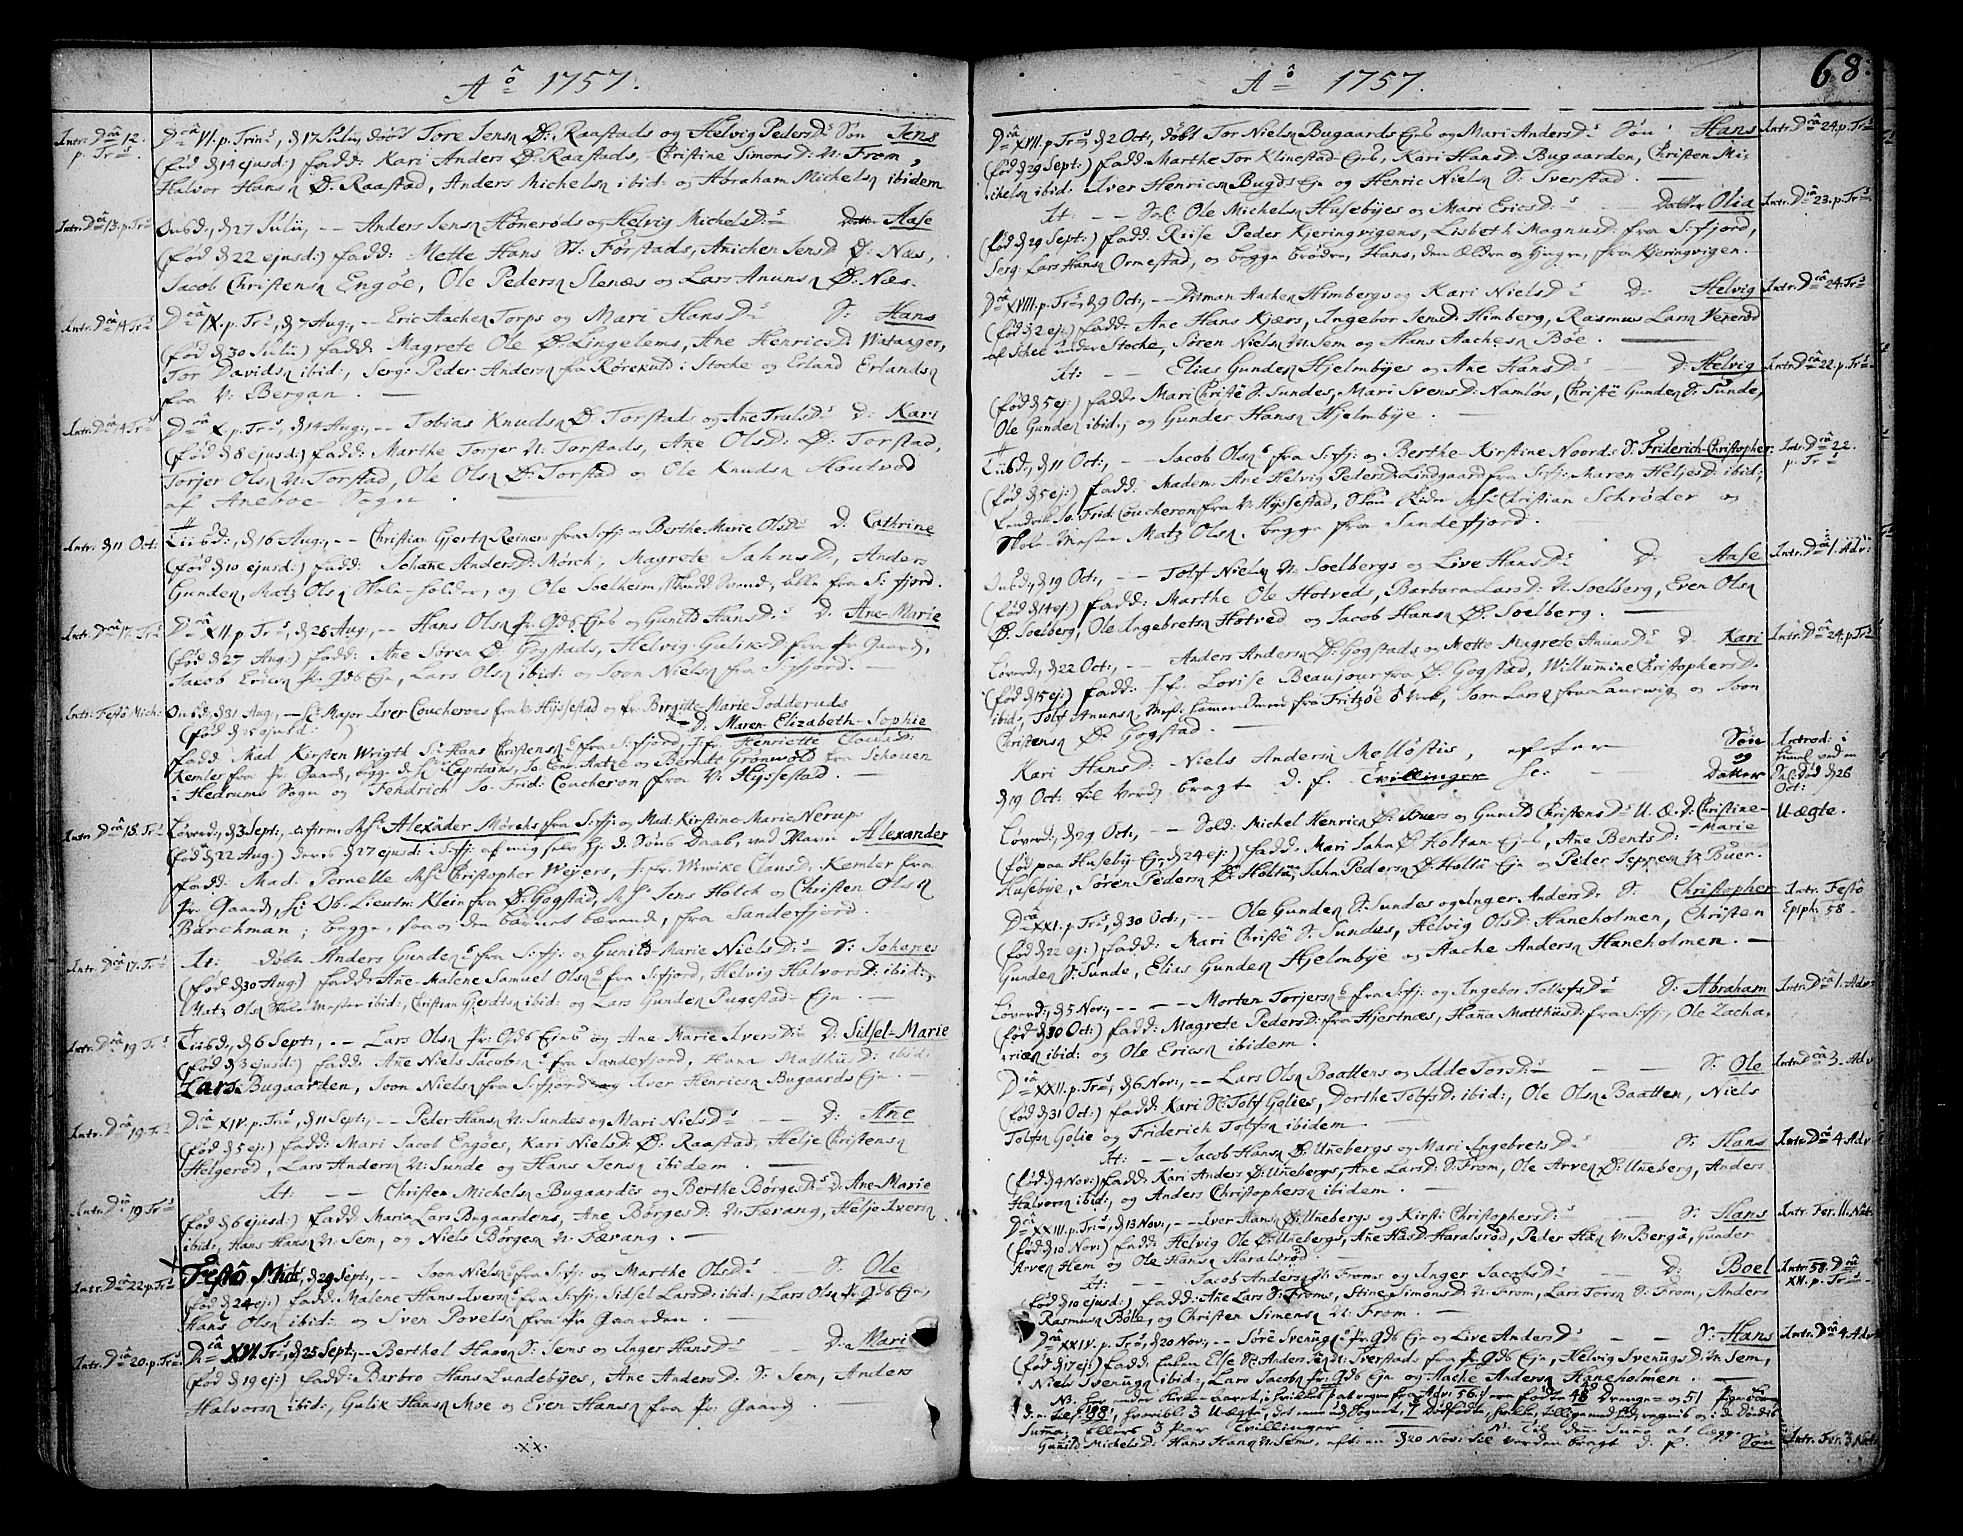 Aô 1757.
Intr. Dca 12. p. Trs.
Dca VI. p. Trins, d 17 Julii, døbt Tore Jensn Ø: Raastads og Helvig PedersD: Søn Jens
(fød d 14 ejusd:) fadd: Kari Anders Ø: Raastads, Christine SimonsD: N: From,
Halvor Hansn Ø: Raastad, Anders Michelsn ibid: og Abraham Michelsn ibidem
Intr. Dca 13. p. Trs
Onsd, d 27 Julii, -- Anders Jensn Hønerøds og Helvig MichelsD: Datt Aase
(fød d 22 ejusd:) fadd: Mette Hans Førstads, Anichen JensD Ø: Næs,
Jacob Christensn Engøe, Ole Pedersn Slenæs og Lars Anunsn Ø: Næs.
Intr. Dca 14 Trs
Dca IX. p. Trs, d 7 Aug:, -- Eric Aachen Torps og Mari HansD: S: Hans
(fød d 30 Julii) fadd: Magrete Ole Ø: Lingelems, Ane HenricsD:
Tor Davidsn ibid:, Serg: Peder Andersn fra Rørekuld i Stocke og Erland Erlandsn
fra V: Bergan.
Intr. Dca 14 Trs
Dca X. p. Trs, d 14 Aug:, -- Tobias Knudsn Ø: Torstads og Ane TralsD: D: Kari
(fød d 8 ejusd:) fadd: Marthe Torjer N: Torstads, Ane OlsD: Ø: Torstad,
Torjer Olsn N: Torstad, Ole Olsn Ø: Torstad og Ole Knudsn Houtvod
af Aneboe Sogn.
Intr. d 11 Oct:
Tiisd:, d 16 Aug:, -- Christian Gjertsn Reiners fra S:fj: og Berthe Marie OlsD: D: Cathrine
(fød d 10 ejusd:) fadd: Johane AndersD: Mørch, Magrete JahnsD:, Anders
Gundersn, Matz Olsn Skole-holder, og Ole Soelheim, alle fra S: fjord.
Intr. Dca 17. Trs
Dca XII. p. Trs, d 28 Aug:, -- Hans Olsn Pr: Gds Ejes og Gunild HansD: D: Ane-Marie
(fød d 27 Aug:) fadd: Ane Søren Ø: Gogstads, Helvig GulikD: fra Pr Gaard,
Jacob Ericsn Pr: Gds Eje, Lars Olsn ibid: og Joon Nielsn fra S:fjord.
Intr: Festô Mich:
Onsd, d 31 Aug, -- Hr Major Iver Coucherons fra N: Hyssestad og fr Birgitte Marie Todderuds
D: Maren-Elizabeth-Sophie
(fød d 15 ejusd:)
fadd: Mad: Kirsten Wrigth Sr Hans Christensns fra S:fjord, J:fr: Henriette ClausD:
Kemler fra Pr: Gaard, Capitain Jo: Con: Matze og Berntt Grønwold fra Schouen
i Hedrums Sogn og Fendrich Jo: Frid: Coucheron fra N: Hyssestad.
Intr. Dca 18. Trs
Løverd:, d 3 Sept:, Alexander Mørchs fra S:fj: og Mad: Kirstine Marie Nerup Alexander
(fød d 22 Aug:) d 27 ejusd: i S:fj: af mig selv Daab, ved Navn
fadd: Mad: Pernelle Christopher Weyers, J:fr Wiwike ClausD: Kemler fra
Pr: Gaard, Hr Ob: Lieutn: Klein fra Ø: Gogstad, Jens Holck og Christen Olsn
Barchman; begge, saa og den barnet bærende, fra Sandefjord.
Intr. Dca 17. Trs
It: døbt Anders Gundersns fra S:fj: og Gunild-Marie NielsD: S: Johanes
(fød d 30 Aug) fadd: Ane-Malene Samuel Olsns fra S:fjord, Helvig HalvorsD: ibid:,
Matz Olsn Skole Mester ibid:, Christian Gjerdtsn ibid: og Lars Gundersn Pugestad-Eje.
Intr. Dca 19 Trs
Tiisd:, d 6 Sept:, -- Lars Olsn Pr: Gds Ejes og Ane Marie IversD: D: Sidsel-Marie
(fød d 3 ejusd:) fadd: Ane Niels Jacobsns fra Sandefjord, Hana MadthisD: ibid:
Lars Bugaarden, Joon Nielsn fra S:fjord og Iver Henricsn Bugaards Eje
Intr. Dca 19. Trs
Dca XIV. p. Trs, d 11 Sept:, -- Peder Hansn N: Sundes og Mari NielsD: D: Ane
(fød d 5 ej:) fadd: Mari Jacob Engøes, Kari NielsD: Ø: Raastad, Helje Christensn
Helgerød, Lars Andersn N: Sunde og Hans Jensn ibidem.
Intr. Dca 19 Trs
It: -- Christen Michelsn Bugaardis og Berthe BørgesD: D: Ane-Marie
(fød d 6 ejusd:) fadd Maria Lars Bugaardens, Ane BørgesD: N: Fevang, Helje Iversn
ibid:, Hans Hansn N: Sem, og Niels Børgesn N: Færang.
Intr. Dca 22 p. Trs
Festô Mich:, d 29 Sept:, -- Joon Nielsns fra S:fj: og Marthe OlsD: S: Ole
(fød d 24 ej:) fadd: Malene Hans Iversns fra S:fj:, Sidsel LarsD: ibid:, Lars Olsn Pr: Gds Eje,
Hans Olsn ibid: og Sven Povelsn fra Pr Gaarden.
Intr. Dca 20. p. Trs
Dca XVI. Trs, d 25 Sept:, -- Berthel Hansn S: Sems og Inger HansD: D: Mari
(fød d 19 ej:) fadd: Barbro Hans Lundebyes, Ane AndersD: S: Sem, Anders
Halvorsn ibid:, Gulik Hansn Moe og Even Hansn fra Pr: Gaard.
Aô 1757.
68.
Dca XVII. p. Trs, d 2 Oct:, døbt Tor Nielsn Bugaards Ejes og Mari AndersD: Søn: Hans
Intr. Dca 24. p. Trs
(fød d 29 Sept:) fadd: Marthe Tor Klinestad-Ejes, Kari HansD: Bugaarden, Christen Mi-
ichelsn ibid: Iver Henricsn Bugds Eje og Henric Nielsn S: Sverstad.
It: -- Sol: Ole Michelsn Husebyes og Mari EricsD: Datter Olia
Intr. Dca 23. p. Trs
(fød d 29 Sept:) fadd: Riise Peder Kjeringvigens, Lisbeth MagnusD: fra S:fjord,
Serg: Lars Hansn Ormestad, og begge brødre, Hans, den Ældre og Yngre, fra Kjeringvigen.
Dca XVIII. p. Trs, d 9 Oct:, -- Ditman Aachen Himbergs og Kari NielsD: D: Helvig
Intr. Dca 24 Trs
(fød d 2 ej:) fadd: Ane Hans Kjærs, Ingebor JensD: Himberg, Rasmus Larsn Vererød
af Schee under Stocke, Søren Nielsn N: Sem og Hans Aachesn Bøe.
It: -- Elias Gundersn Hjelmbyes og Ane HansD: D: Helvig
Intr. Dca 22. p. Trs
(fød d 5 ej:) fadd: Mari Christê S: Sundes, Mari SvensD: Namløs, Christê Gundersn S: Sunde,
Ole Gundersn ibid:, og Gunder Hansn Hjelmbye.
Tiisd:, d 11 Oct:, -- Jacob Olsns fra S:fj: og Berthe-Kirstine Noords S: Friderich-Christopher
Intr. Dca 22. p. Trs
(fød d 5 ej:) fadd: Madem: Ane Helvig PedersD: Lindgaard fra S:fj: Maren HeljesD: ibid:,
Fendrik Jo: Frid: Coucheron fra N: Hyssestad, Christian Schrøder og
Skole-Mester Matz Olsn, begge fra Sandefjord.
Onsd:, d 19 Oct:, -- Tolf Nielsn N: Soelbergs og Live HansD: D: Aase
Intr. Dca 1. Adv:
(fød d 14 ej:) fadd: Marthe Ole Hotveds, Barbara LarsD: N: Soelberg, Even Olsn
Ø: Soelberg, Ole Ingebretsn Hotved og Jacob Hansn Ø: Soelberg.
Løverd:, d 22 Oct:, -- Anders Andersn Ø: Gogstads og Mette Magrete AnunsD: D: Kari
Intr. Dca 24. p. Trs
(fød d 15 ej:) fadd: J:fr: Lovise Beaujour fra Ø: Gogstad, Willumine ChristophersD:
ibid:, Tolf Anunsn fra Fritzøe Verk, Jørn Larsn fra Laurwig og Joon
Christensn Ø: Gogstad.
Kari HansD: Niels Andersn Melløstis, efter Søn
Introd: i
og
d 19 Oct: til Verdn bragte d. f. Tvillinger Datter
d 26 Oct:
Løverd:, d 29 Oct:, -- Sold: Michel Henricsn Ø: Buers og Gunild ChristensD: U. Æ. D: Christine-
Marie
Uægte.
(fød paa Huseby-Eje d 24 ej:) fadd: Mari Jahn Ø: Holtan-Ejes, Ane BentsD:
Husebye, Søren Pedersn Ø: Holtan, Jahn Pedersn Ø: Holtan Eje og Peder Jeppesn N: Buer.
Dca XXI. p. Trs, d 30 Oct:, -- Ole Gundersn S: Sundes og Inger AndersD: S: Christopher
Intr. Festô Epiph: 58.
(fød d 22 ej:) fadd: Mari Christê S: Sundes, Helvig OlsD: Haneholmen, Christen
Gundersn S: Sunde, Elias Gundersn Hjelmbye og Aache Andersn Haneholmen.
Løverd:, d 5 Nov:, -- Morten Torjersns fra S:fj: og Ingebor TollefsD: S: Abraham
Intr. Dca 1. Adv:
(fød d 30 Oct:) fadd: Magrete PedersD: fra Hjertnæs, Hana MatthiisD: fra S:fj:, Ole Zacha-
riæsn ibid: og Ole Ericsn ibidem.
Dca XXII. p. Trs, d 6 Nov:, -- Lars Olsn Baattens og Idde TorsD: S: Ole
Intr. Dca 3. Adv
(fød d 31 Oct:) fadd: Kari Tolf Golies, Dorthe TolfsD: ibid:, Ole Olsn Baatten, Niels
Tolfsn Golie og Friderich Tolfsn ibidem.
It: -- Jacob Hansn Ø: Unebergs og Mari IngebretsD: S: Hans
Intr. Dca 4. Adv
(fød d 4 Nov:) fadd: Kari Anders Ø: Unebergs, Ane LarsD: S: From, Ole Arvesn Ø: Uneberg, Anders
Halvorsn ibid:, og Anders Christophersn ibidem.
Dca XXIII. p. Trs, d 13 Nov:, -- Iver Hansn Ø: Unebergs og Kirsti ChristophersD: S: Hans
Intr. Fer. II. Nat:
(fød d 10 Nov:) fadd: Helvig Ole Ø: Unebergs, Ane HansD: Haralsrød, Peder Hansn V: Bergâ, Gunder
Arvesn Hem og Ole Hansn Haralsrød.
It: -- Jacob Andersn N: Froms og Inger JacobsD: D: Boel
Intr: 58. Dca XI. p. Trs
(fød d 10 ejusd:) fadd: Ane Lars S: Froms, Stine SimonsD: N: From, Lars Torsn S: From, Anders
Rasmusn Bøle, og Christen Simensn N: From.
Dca XXIV. p. Trs, d 20 Nov:, -- Sørê Svenugsns Pr: Gds Eje og Live AndersD: S: Hans
Intr. Dca 4. Adv
(fød d 17 ej:) fadd: Else Anders N: Sverstads fra Pr: Gds Eje, Helvig SvenugsD: N: Sem,
Niels Svenugsn ibid:, Lars Jacobsn fra Pr: Gds Eje og Aache Andersn Haneholmen.
NB. fra Adv: 56. fødte 48 Drenge og 51 Pigebørn,
98, hvoribl: 3 Uægte, 7 Dødfødte,
Suma, ellers 3 Par Tvillinger. N: til denne Suma at lægge
Gunild MichelsD: Hans Hansn N: Sems, d 20 Nov: til Verden bragt d. f. S: Søn
Intr. Fer. 3. Nat: